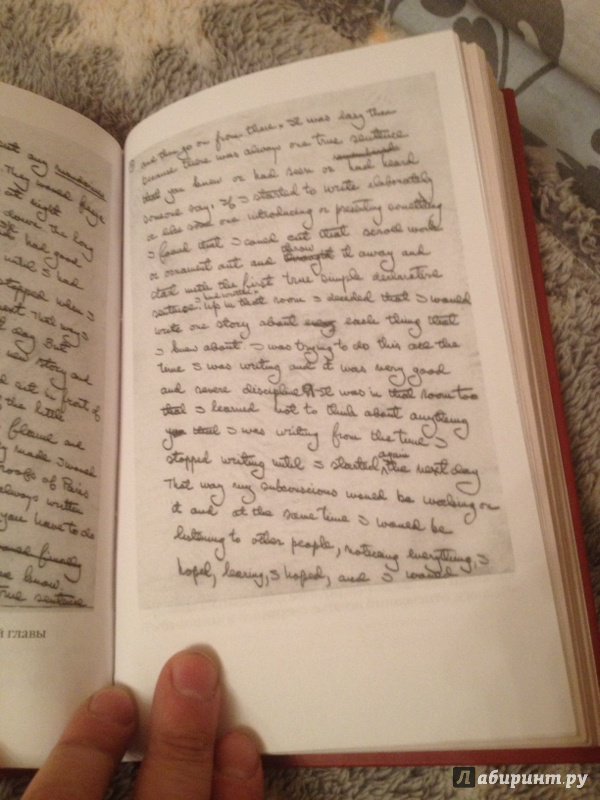 ut any
They would finge
t eight
down the long
t had good
until I had
stopped when I
next. That way I
day. But
new story and
nd sit in front of
of the little
flame and
y made. I would
roofs of Paris
always written
you have to do
know.
true sentence
й главы
and then go on from there. It was easy then
because there was always one true sentence
that you knew or had seen or had heard
someone say. If I started to write elaborately
or like some one introducing or presenting something
I found that I could cut that scroll work
or ornament out and throw it away and
start with the first true simple declarative
sentence I had written. Up in that room I decided that I would
write one story about every each thing that
I knew about. I was trying to do this all the
time I was writing and it was very good
and severe discipline. It was in that room too
that I learned not to think about anything
that I was writing from the time I
stopped writing until I started again the next day
That way my subconscious would be working on
it and at the same time I would be
listening to other people, noticing everything, I
hoped, learning, I hoped, and I would
Лабиринт.ру